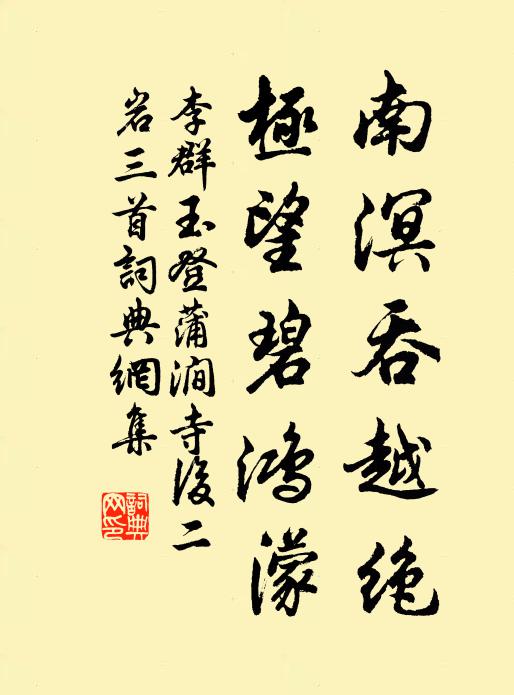 南溟吞越绝
極望碧鴻濛
李群玉登蒲澗寺後二
岩三首詞典網集
詞典網印